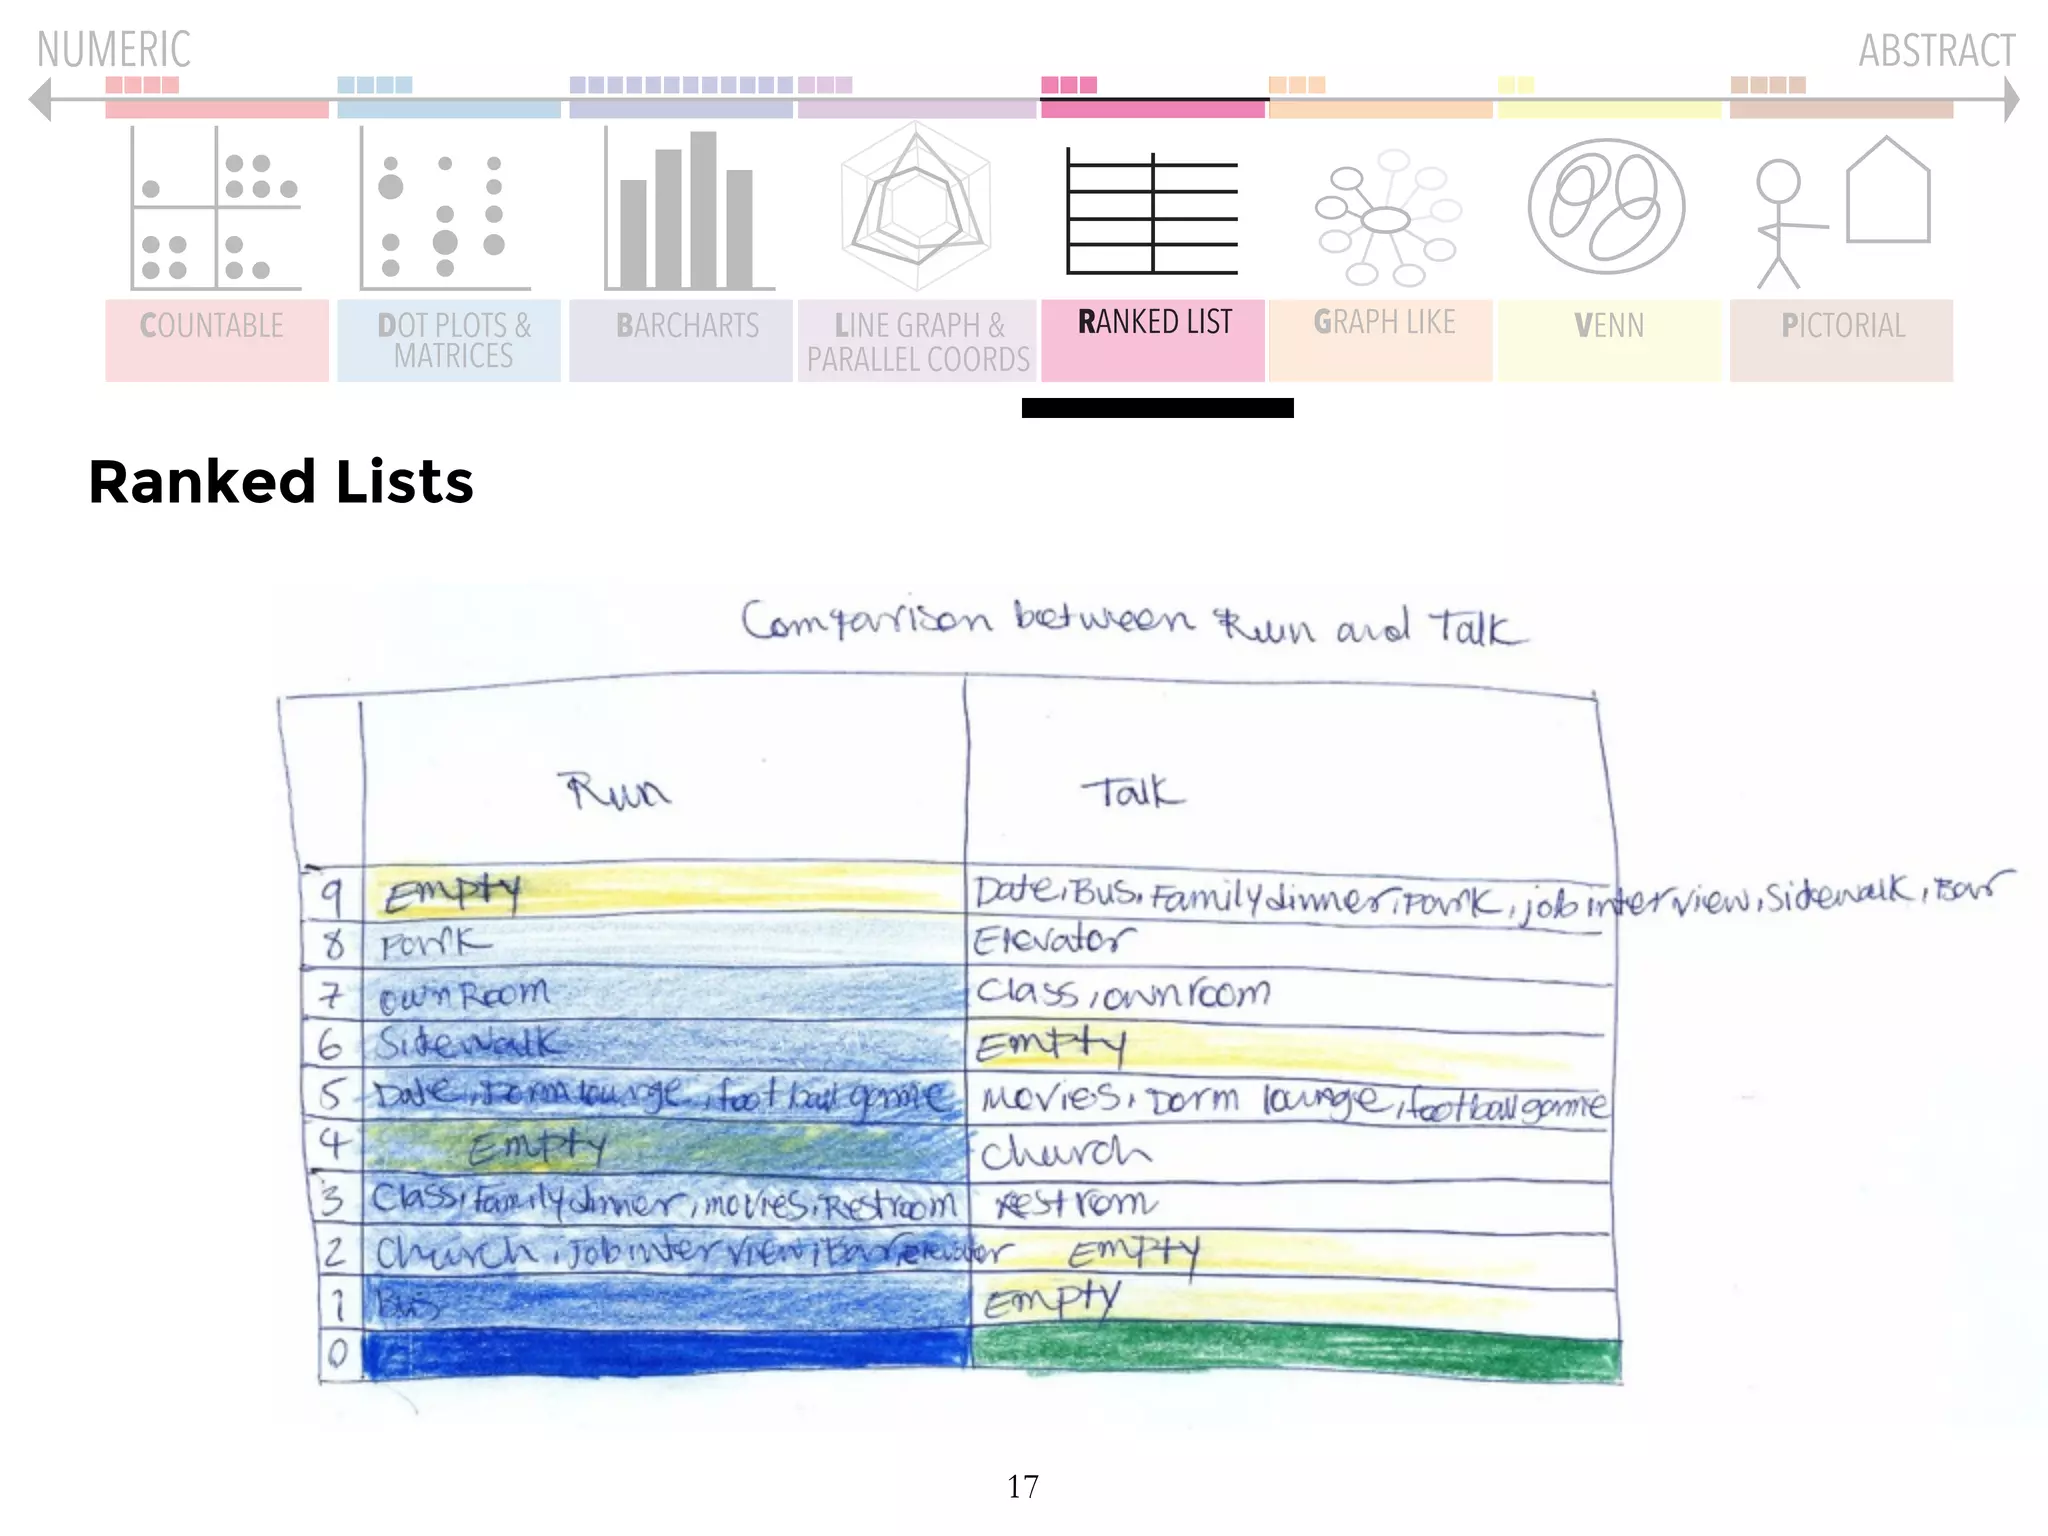 NUMERIC
ABSTRACT
COUNTABLE
DOT PLOTS &
MATRICES
BARCHARTS
LINE GRAPH &
PARALLEL COORDS
RANKED LIST
GRAPH LIKE
VENN
PICTORIAL
Ranked Lists
Comparison between Run and Talk
Run Talk
9 Empty Date, Bus, Family dinner, Park, job interview, Sidewalk, Bar
8 Park Elevator
7 own Room Class, own room
6 Sidewalk Empty
5 Date, Dorm lounge, football game Movies, Dorm lounge, football game
4 Empty church
3 Class, Family dinner, movies, Restroom Restrom
2 Church, Job interview, Bar, elevator Empty
1 Bus Empty
0
17